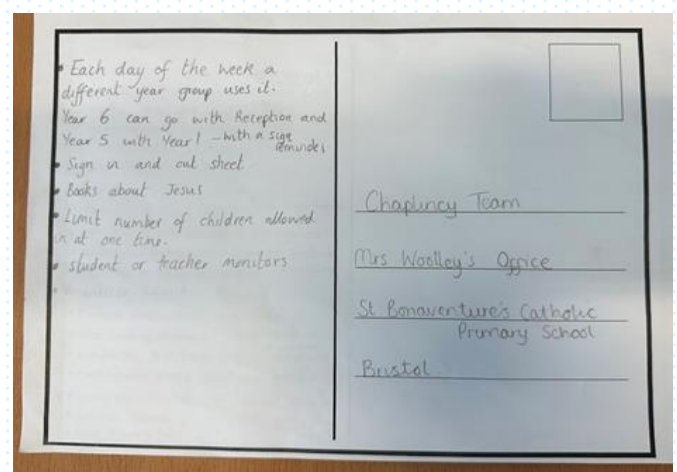 • Each day of the week a
different year group uses it.
Year 6 can go with Reception and
Year 5 with Year 1 - with a sign
reminder
• Sign in and out sheet
• Books about Jesus
• Limit number of children allowed
in at one time.
• student or teacher monitors
Chaplincy Team
Mrs Woolley's Office
St Bonaventure's Catholic
Primary School
Bristol